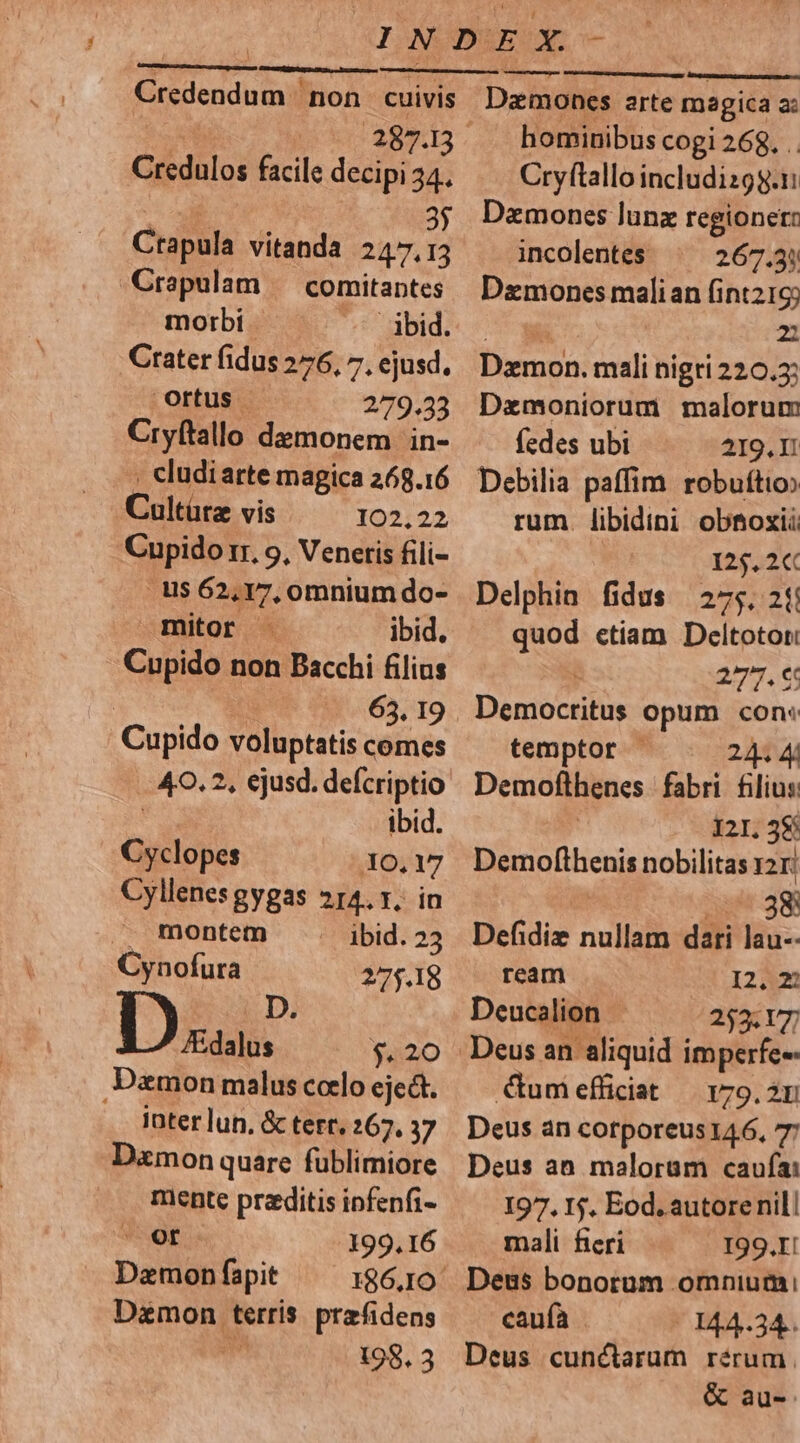 INDEX.
Credendum non cuivis
287.13
Credulos facile decipi 34.
35
Crapula vitanda 247.13
Crapulam comitantes
morbi ibid.
Crater fidus 276, 7. ejusd.
ortus 279.33
Cryſtallo dæmonem in-
cludi arte magica 268.16
Culturæ vis 102.22
Cupido 11, 9, Veneris fili-
us 62.17, omnium do-
mitor ibid.
Cupido non Bacchi filius
63.19
Cupido voluptatis comes
40.2, ejusd. deſcriptio
ibid.
Cyclopes 10.17
Cyllenes gygas 214.1. in
montem ibid. 23
Cynoſura 275.18
D.
DÆdalus 5.20
Dæmon malus cœlo eject.
inter lun. & terr. 267.37
Dæmon quare ſublimiore
mente præditis infenſi-
or 199.16
Dæmon ſapit 186.10
Dæmon terris præſidens
198.3
Dæmones arte magica a
hominibus cogi 268.
Cryſtallo includi 298.
Dæmones lunæ regionem
incolentes 267.
Dæmones mali an ſint
Dæmon. mali nigri 220.
Dæmoniorum malorum
ſedes ubi 219.
Debilia paſſim robuſtio-
rum libidini obnoxia
125.
Delphin fidus 275.
quod etiam Deltoton
277.
Democritus opum con-
temptor 24.4
Demoſthenes fabri filius
121.38
Demoſthenis nobilitas 121
38
Deſidiæ nullam dari lau-
ream 12.
Deucalion 253.17
Deus an aliquid imperfe-
ctum efficiat 179.
Deus an corporeus 146, 7
Deus an malorum cauſa
197.15. Eod. autore nil
mali fieri 199.
Deus bonorum omnium
cauſa 144.34.
Deus cunctarum rerum
& au-